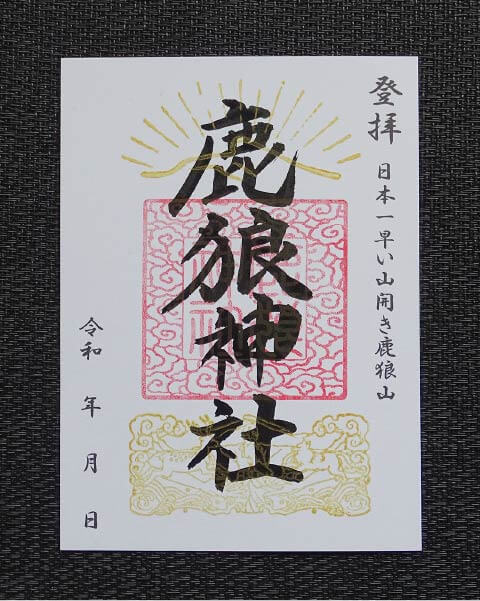 登拝
日本一早い山開き鹿狼山
鹿狼神社
令和 年 月 日